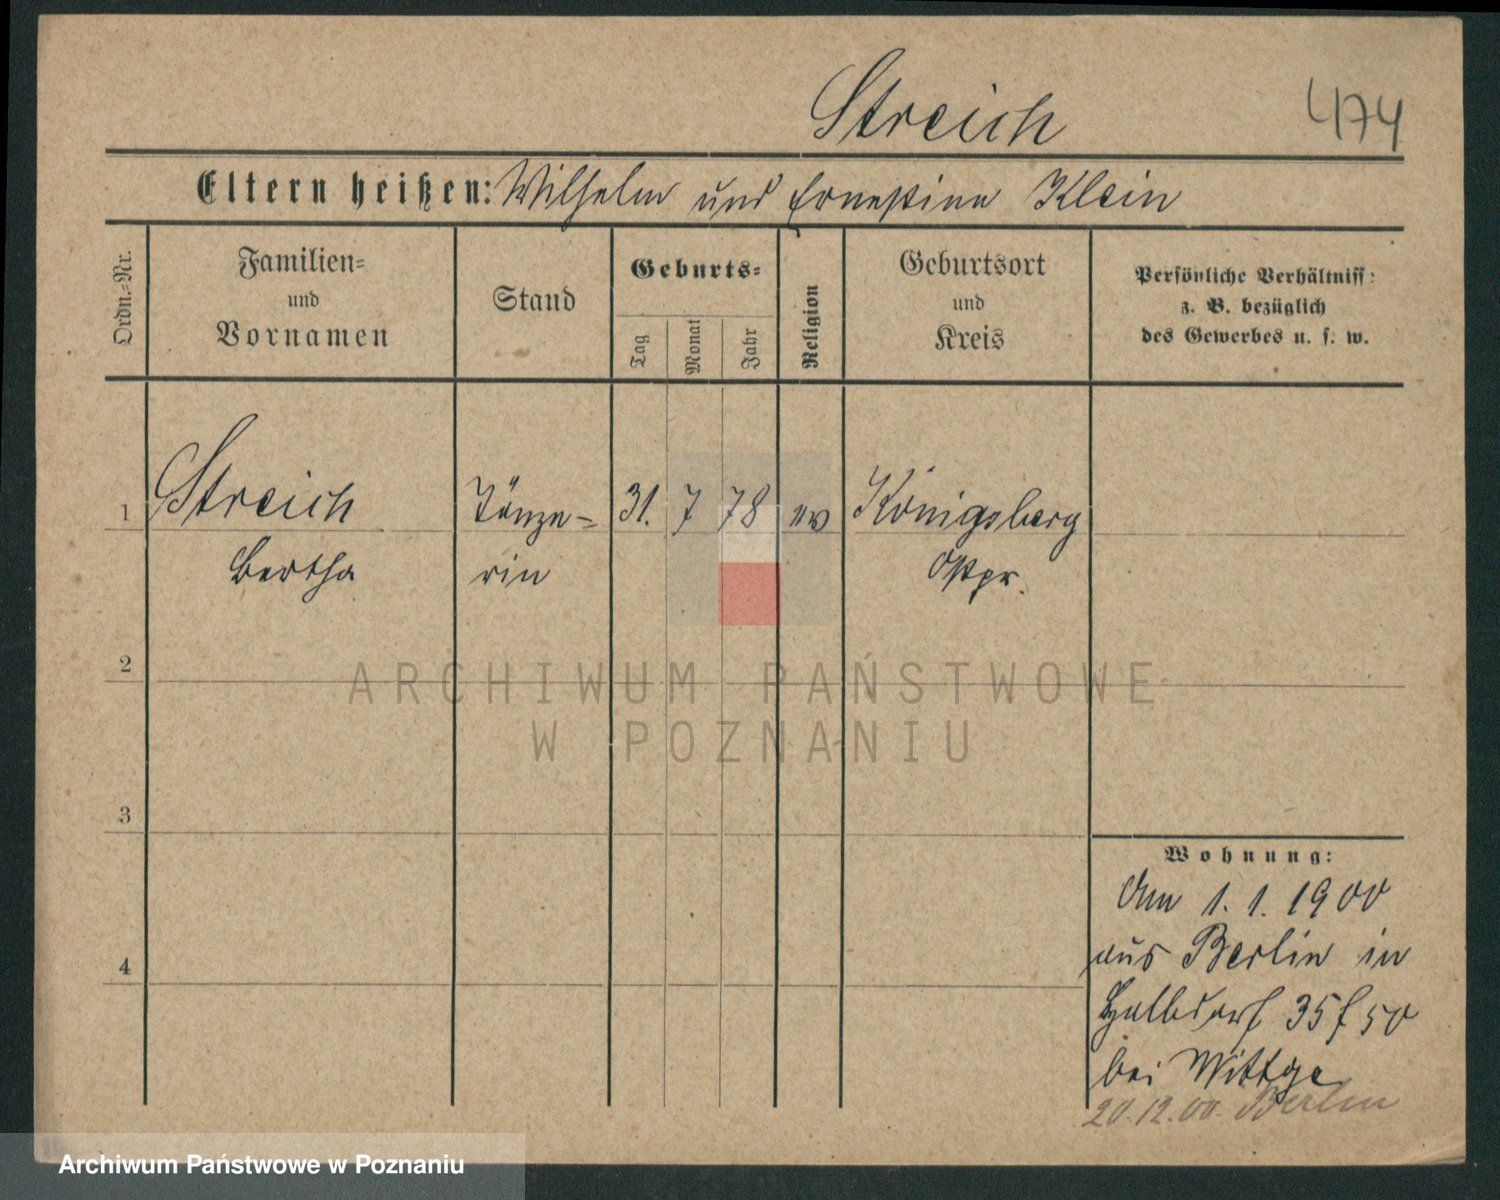 Streich
474
Eltern heißen: Wilhelm und Ernestine Klein
Ordn.-Nr.
Familien-
und
Vornamen
Stand
Geburts-
Tag
Monat
Jahr
Religion
Geburtsort
und
Kreis
Persönliche Verhältniss:
z. B. bezüglich
des Gewerbes u. s. w.
1 Streich Tänze- 31. 7 78 ev Königsberg
Bertha rin Ostpr.
2
3
4
Wohnung:
Am 1. 1. 1900
aus Berlin in
Halbdorf 35 f 50
bei Wittge
20.12.00. Berlin
ARCHIWUM PAŃSTWOWE
W POZNANIU
Archiwum Państwowe w Poznaniu